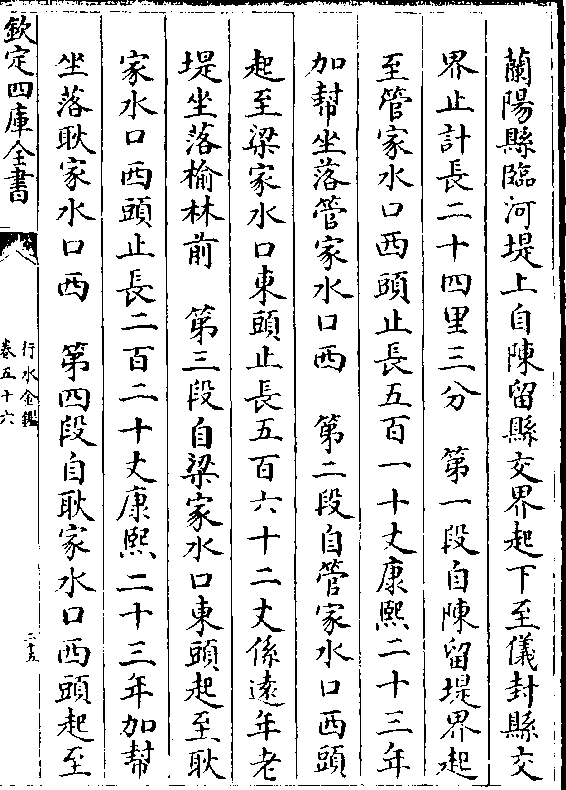 蘭陽縣臨河堤上自陳留縣交界起下至儀封縣交
界止計長二十四里三分　第一段自陳留堤界起
至管家水口西頭止長五百一十丈康熙二十三年
加幇坐落管家水口西　第二段自管家水口西頭
起至梁家水口東頭止長五百六十二丈係遠年老
堤坐落榆林前　第三段自梁家水口東頭起至耿
家水口西頭止長二百二十丈康熙二十三年加幇
坐落耿家水口西　第四段自耿家水口西頭起至
欽定四庫全書
行水金鑑
卷五十六